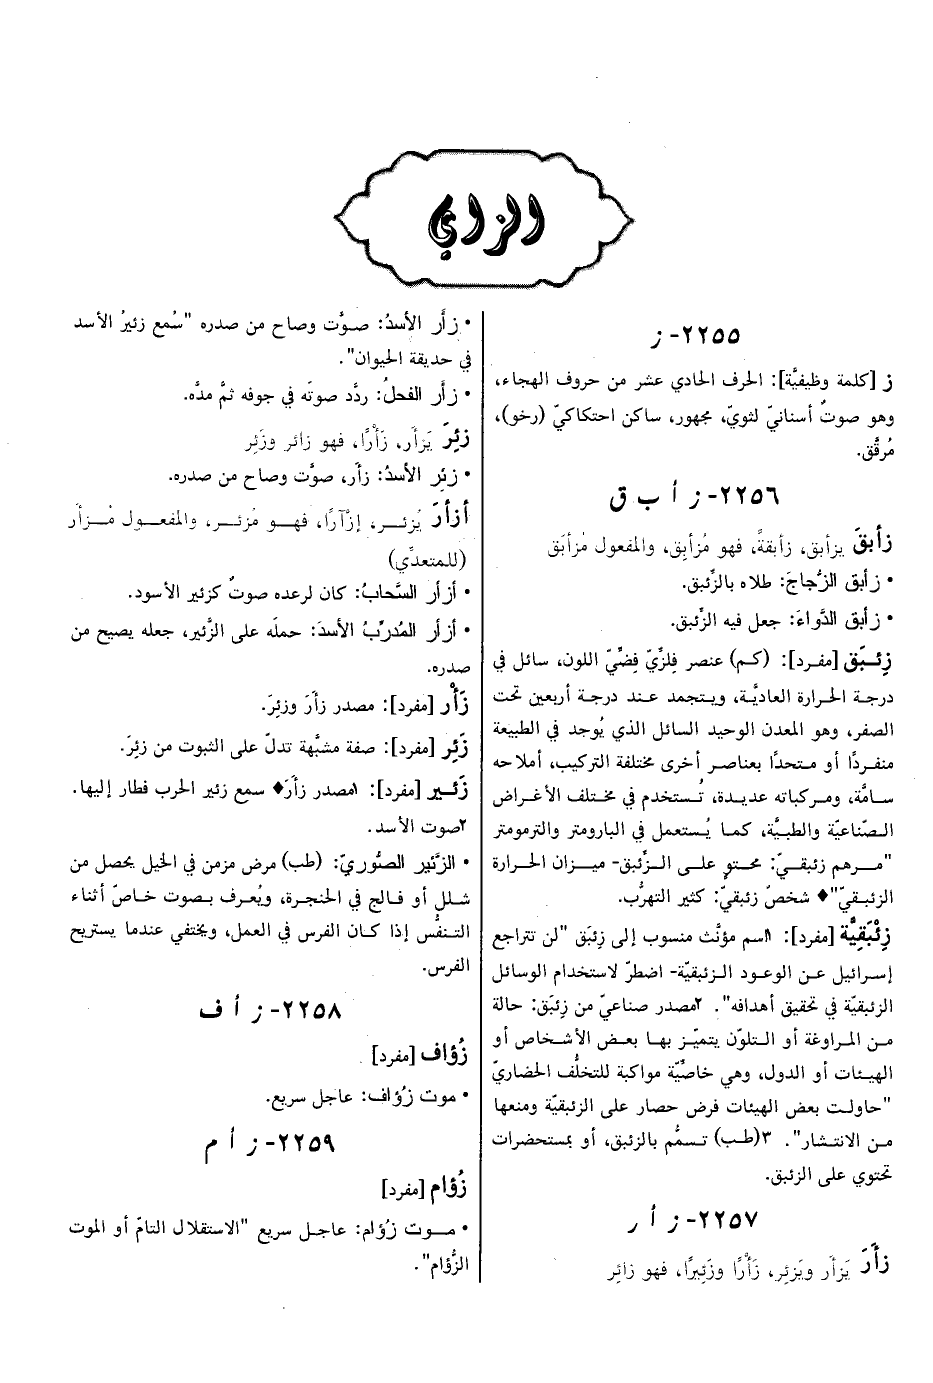 الزاي
٢٢٥٥- ز
ز [كلمة وظيفيَّة]: الحرف الحادي عشر من حروف الهجاء،
وهو صوتٌ أسنانيّ لثويّ، مجهور، ساكن احتكاكيّ (رخو)،
مُرقَّق.
٢٢٥٦- ز أ ب ق
زأبقَ يزأبق، زأبقةً، فهو مُزأبِق، والمفعول مُزأبَق
• زأبق الزُّجاجَ: طلاه بالزِّئبق.
• زأبق الدَّواءَ: جعل فيه الزِّئبق.
زِئـبَق [مفرد]: (كم) عنصر فِلزيّ فِضّيّ اللون، سائل في
درجة الحرارة العاديَّة، ويـتجمد عـند درجة أربعين تحت
الصفر، وهو المعدن الوحيد السائل الذي يُوجد في الطبيعة
منفـردًا أو متـحدًا بعناصر أخرى مختلفة التركيب، أملاحه
سـامَّة، ومـركباته عديـدة، تُستخدم في مخـتلف الأغـراض
الـصّناعيَّة والطبيَّة، كمـا يُـستعمل في البارومتر والترمومتر
"مـرهم زئبقيّ: محـتوٍ علـى الـزِّئبق- ميـزان الحـرارة
الزئبـقيّ" ♦ شخصٌ زئبقيّ: كثير التهرُّب.
زِئْبَقِيَّة [مفرد]: ١اسم مؤنَّث منسوب إلى زِئبَق "لن تتراجع
إسـرائيل عـن الوعود الـزئبقيّة- اضطرّ لاستخدام الوسائل
الزئبقيّة في تحقيق أهدافه". ٢مصدر صناعيّ من زِئبَق: حالة
مـن المـراوغة أو الـتلوّن يتميّـز بهـا بعـض الأشـخاص أو
الهيـئات أو الدول، وهي خاصّيَّة مواكبة للتخلُّف الحضاريّ
"حاولـت بعض الهيئات فرض حصار على الزئبقيّة ومنعها
مـن الانتشار". ٣(طب) تـسمُّم بالزئبق، أو بمستحضرات
تحتوي على الزئبق.
٢٢٥٧- ز أ ر
زأَرَ يَزأَر ويَزئِر، زَأْرًا وزَئيرًا، فهو زائِر
• زأَر الأسدُ: صـوَّت وصاح من صدره "سُمع زئيرُ الأسد
في حديقة الحيوان".
• زأَر الفحلُ: ردَّد صوتَه في جوفه ثمَّ مدَّه.
زئِرَ يَزأَر، زَأْرًا، فهو زائر وزَئِر
• زئِر الأسدُ: زأَر، صوَّت وصاح من صدره.
أزأرَ يُزئـر، إزْآرًا، فـهـو مُزئـر، والمفعـول مُـزأَر
(للمتعدِّي)
• أزأر السَّحابُ: كان لرعده صوتٌ كزئير الأسود.
• أزأر المُدرِّبُ الأسدَ: حملَه على الزَّئير، جعله يصيح من
صدره.
زَأْر [مفرد]: مصدر زأَرَ وزئِرَ.
زَئِر [مفرد]: صفة مشبَّهة تدلّ على الثبوت من زئِرَ.
زَئـير [مفرد]: ١مصدر زأَرَ ♦ سمع زئير الحرب فطار إليها.
٢صوت الأسد.
• الزَّئير الصَّنُّوريّ: (طب) مرض مزمن في الخيل يحصل من
شـلل أو فـالج في الحنجرة، ويُعرف بـصوت خـاصّ أثـناء
التـنفُّس إذا كـان الفرس في العمل، ويختفي عندما يستريح
الفرس.
٢٢٥٨- ز أ ف
زُؤاف [مفرد]
• موت زُؤاف: عاجل سريع.
٢٢٥٩- ز أ م
زُؤام [مفرد]
• مـوت زُؤام: عاجـل سريع "الاستقلال التامّ أو الموت
الزُّؤام".